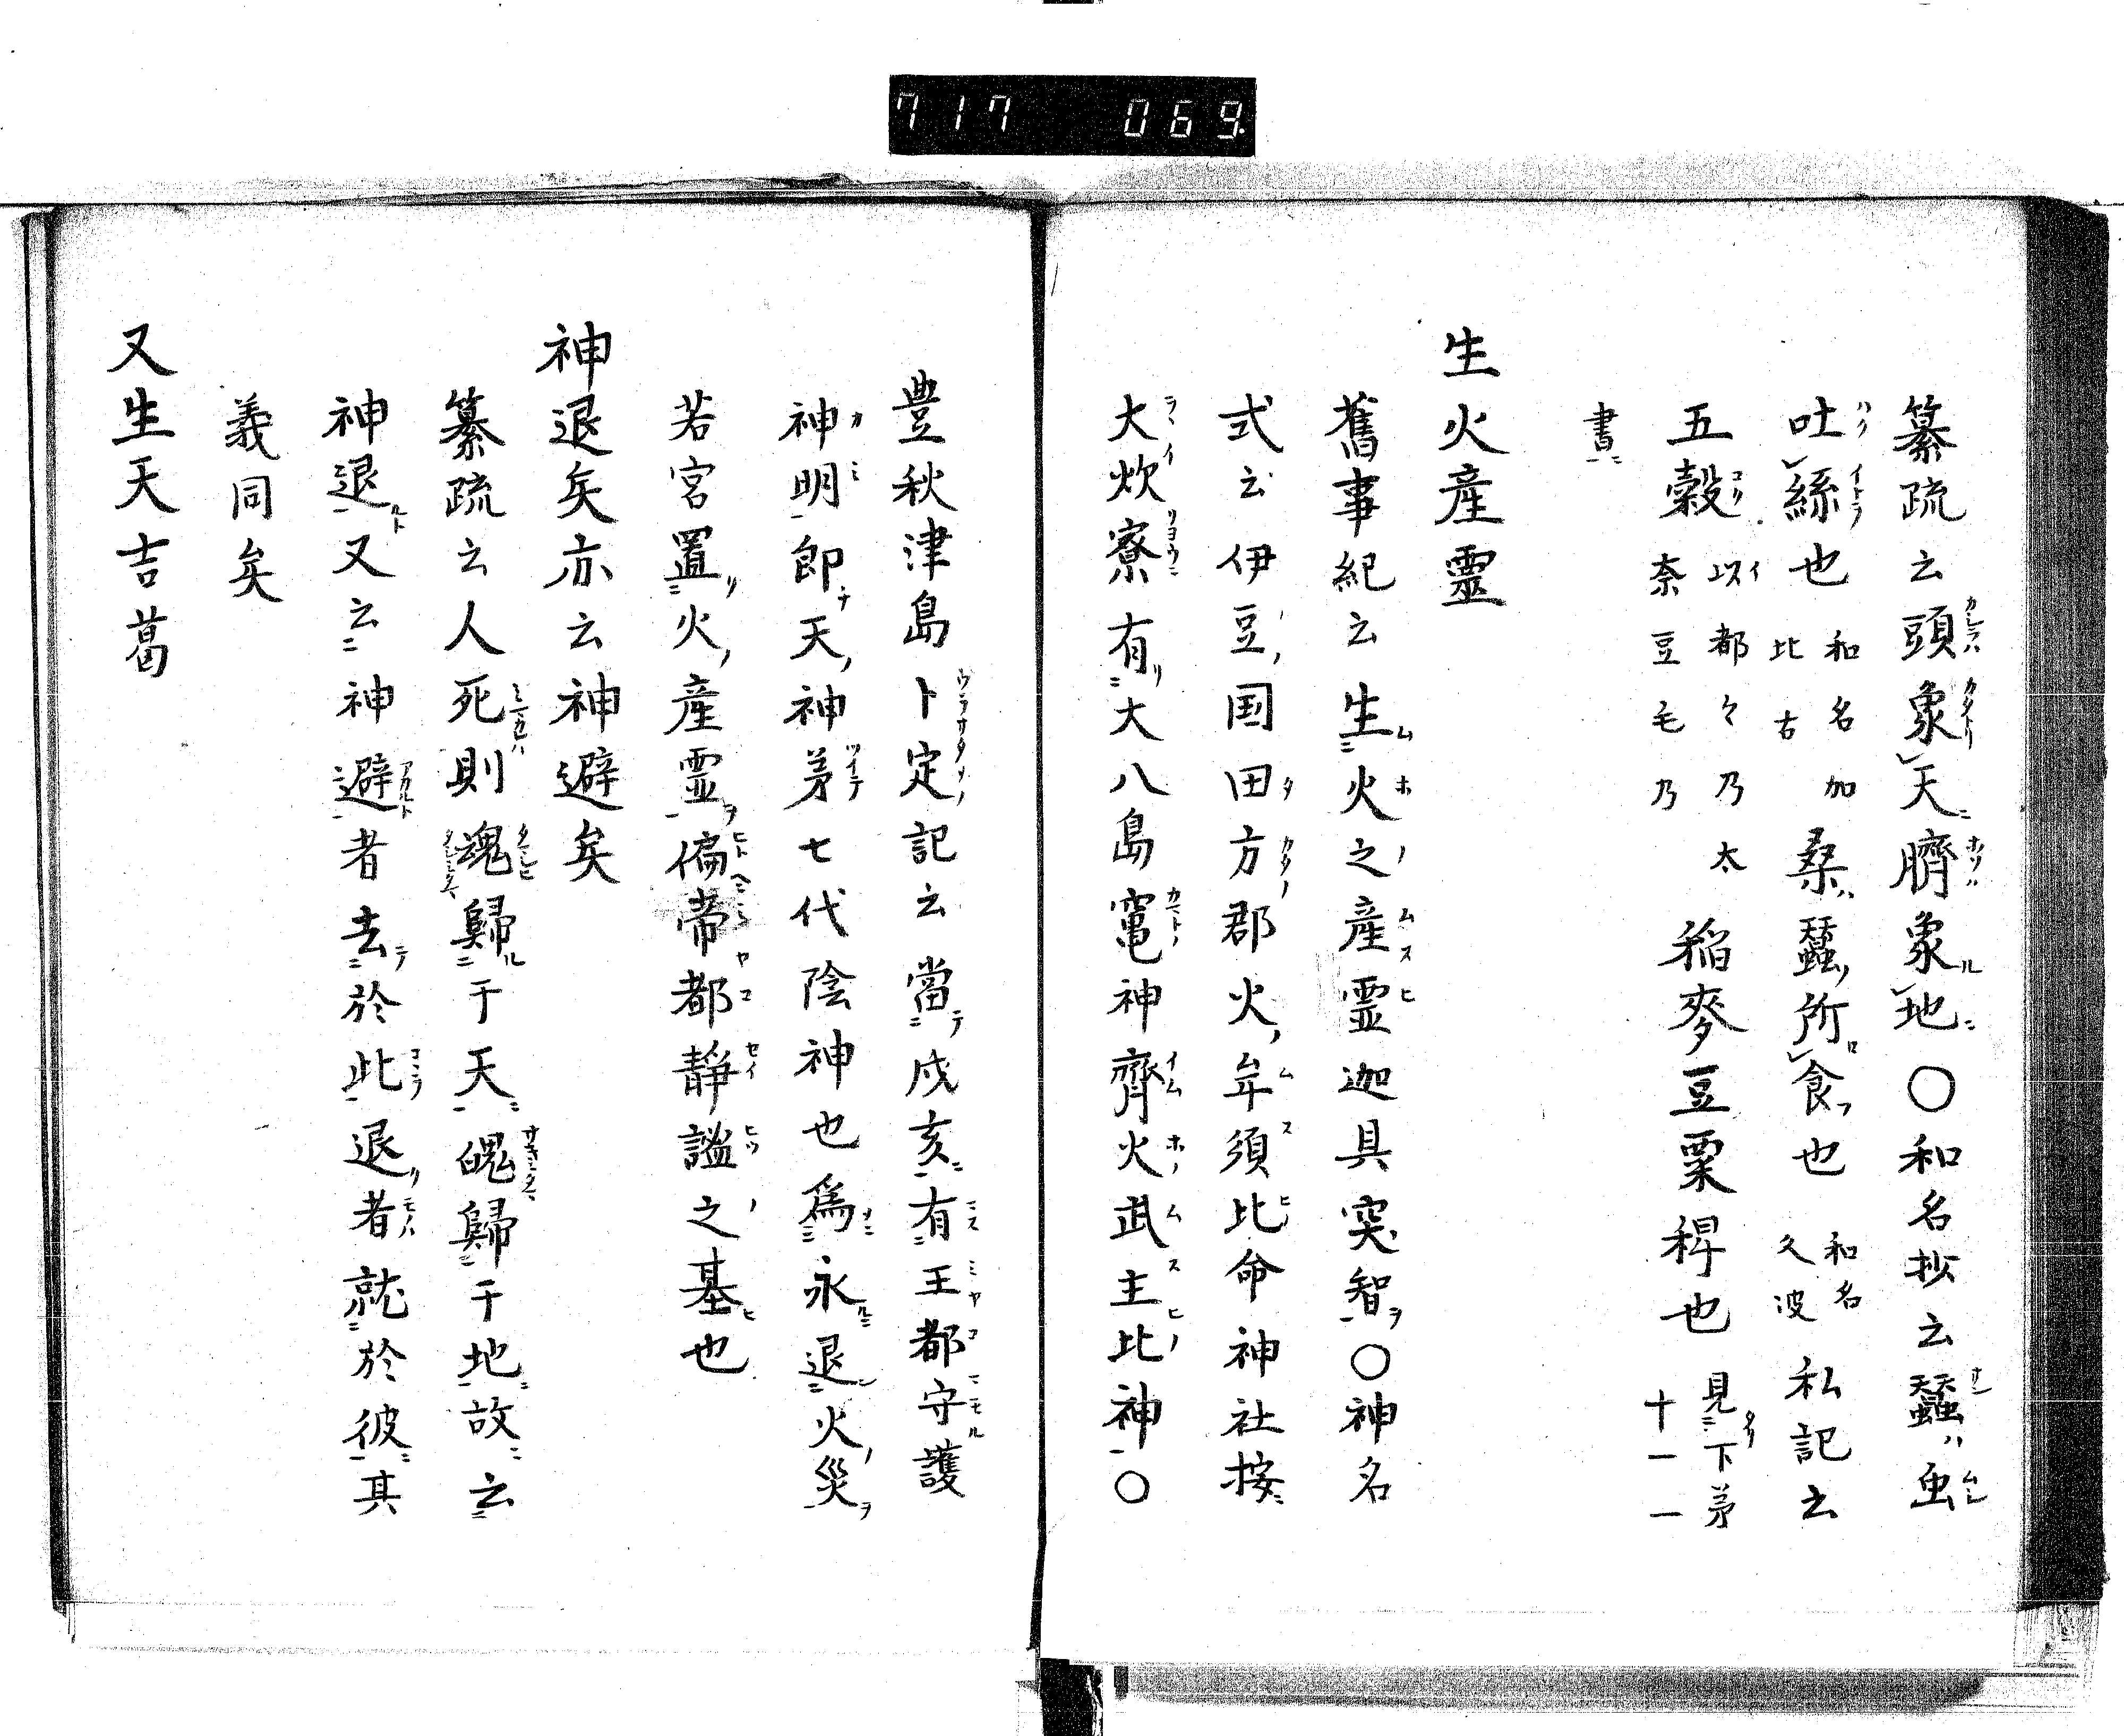 717 069
纂疏云頭象天臍象地〇和名抄云蠶虫
吐絲也和名加比古桑蠶所食也和名久波私記云
五穀以都々乃太奈豆毛乃稲麥豆粟稗也見下第十一一
書
生火産霊
舊事紀云生火之産霊迦具突智〇神名
式云伊豆国田方郡火牟須比命神社按
大炊寮有大八島竃神齊火武主比神〇
豊秋津島卜定記云當戌亥有王都守護
神明即天神第七代陰神也為永退火災
若宮置火産霊偏帝都静謐之基也
神退矣亦云神避矣
纂疏云人死則魂歸于天魄歸于地故云
神退又云神避者去於此退者就於彼其
義同矣
又生天吉葛